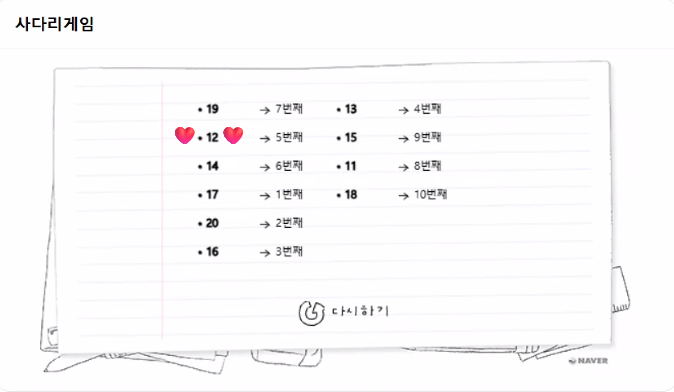 사다리게임
• 19 → 7번째 • 13 → 4번째
• 12 → 5번째 • 15 → 9번째
• 14 → 6번째 • 11 → 8번째
• 17 → 1번째 • 18 → 10번째
• 20 → 2번째
• 16 → 3번째
다시하기
NAVER